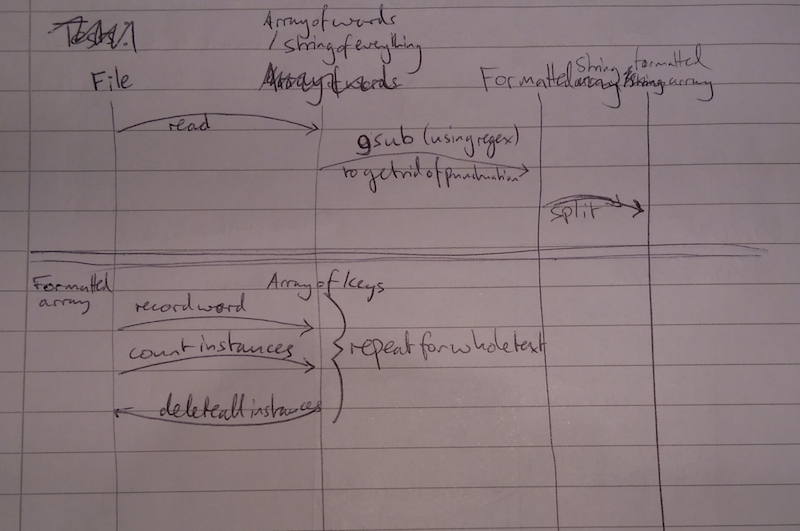 Array of words
/ string of everything
File
Array of words
Formatted array
String
string array
formatted
read
gsub (using regex)
to get rid of punctuation
split
Formatted
array
Array of keys
record word
count instances
repeat for whole text
delete all instances